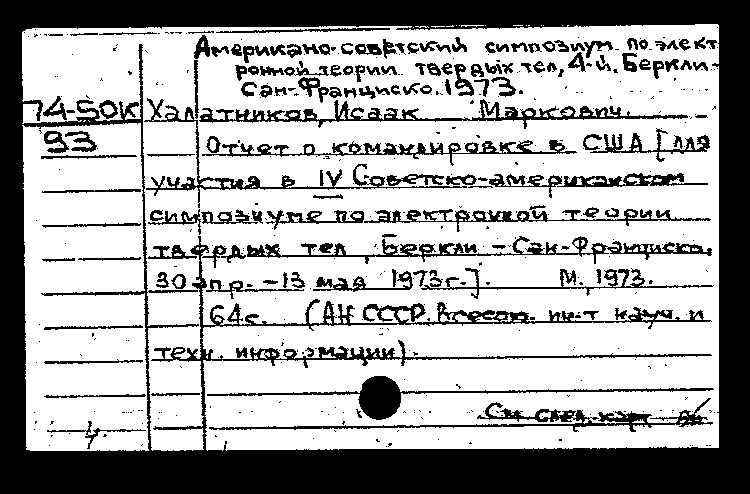 Американо-советский симпозиум по элект
ронной теории твердых тел, 4-й. Беркли-
Сан-Франциско. 1973.
74-50К Халатников, Исаак Маркович.
93 Отчет о командировке в США [для
участия в IV Советско-американском
симпозиуме по электронной теории
твердых тел, Беркли - Сан-Франциско,
30 апр. - 13 мая 1973г.]. М., 1973.
64с. (АН СССР. Всесоюз. ин-т науч. и
техн. информации).
См. след. карт
4.